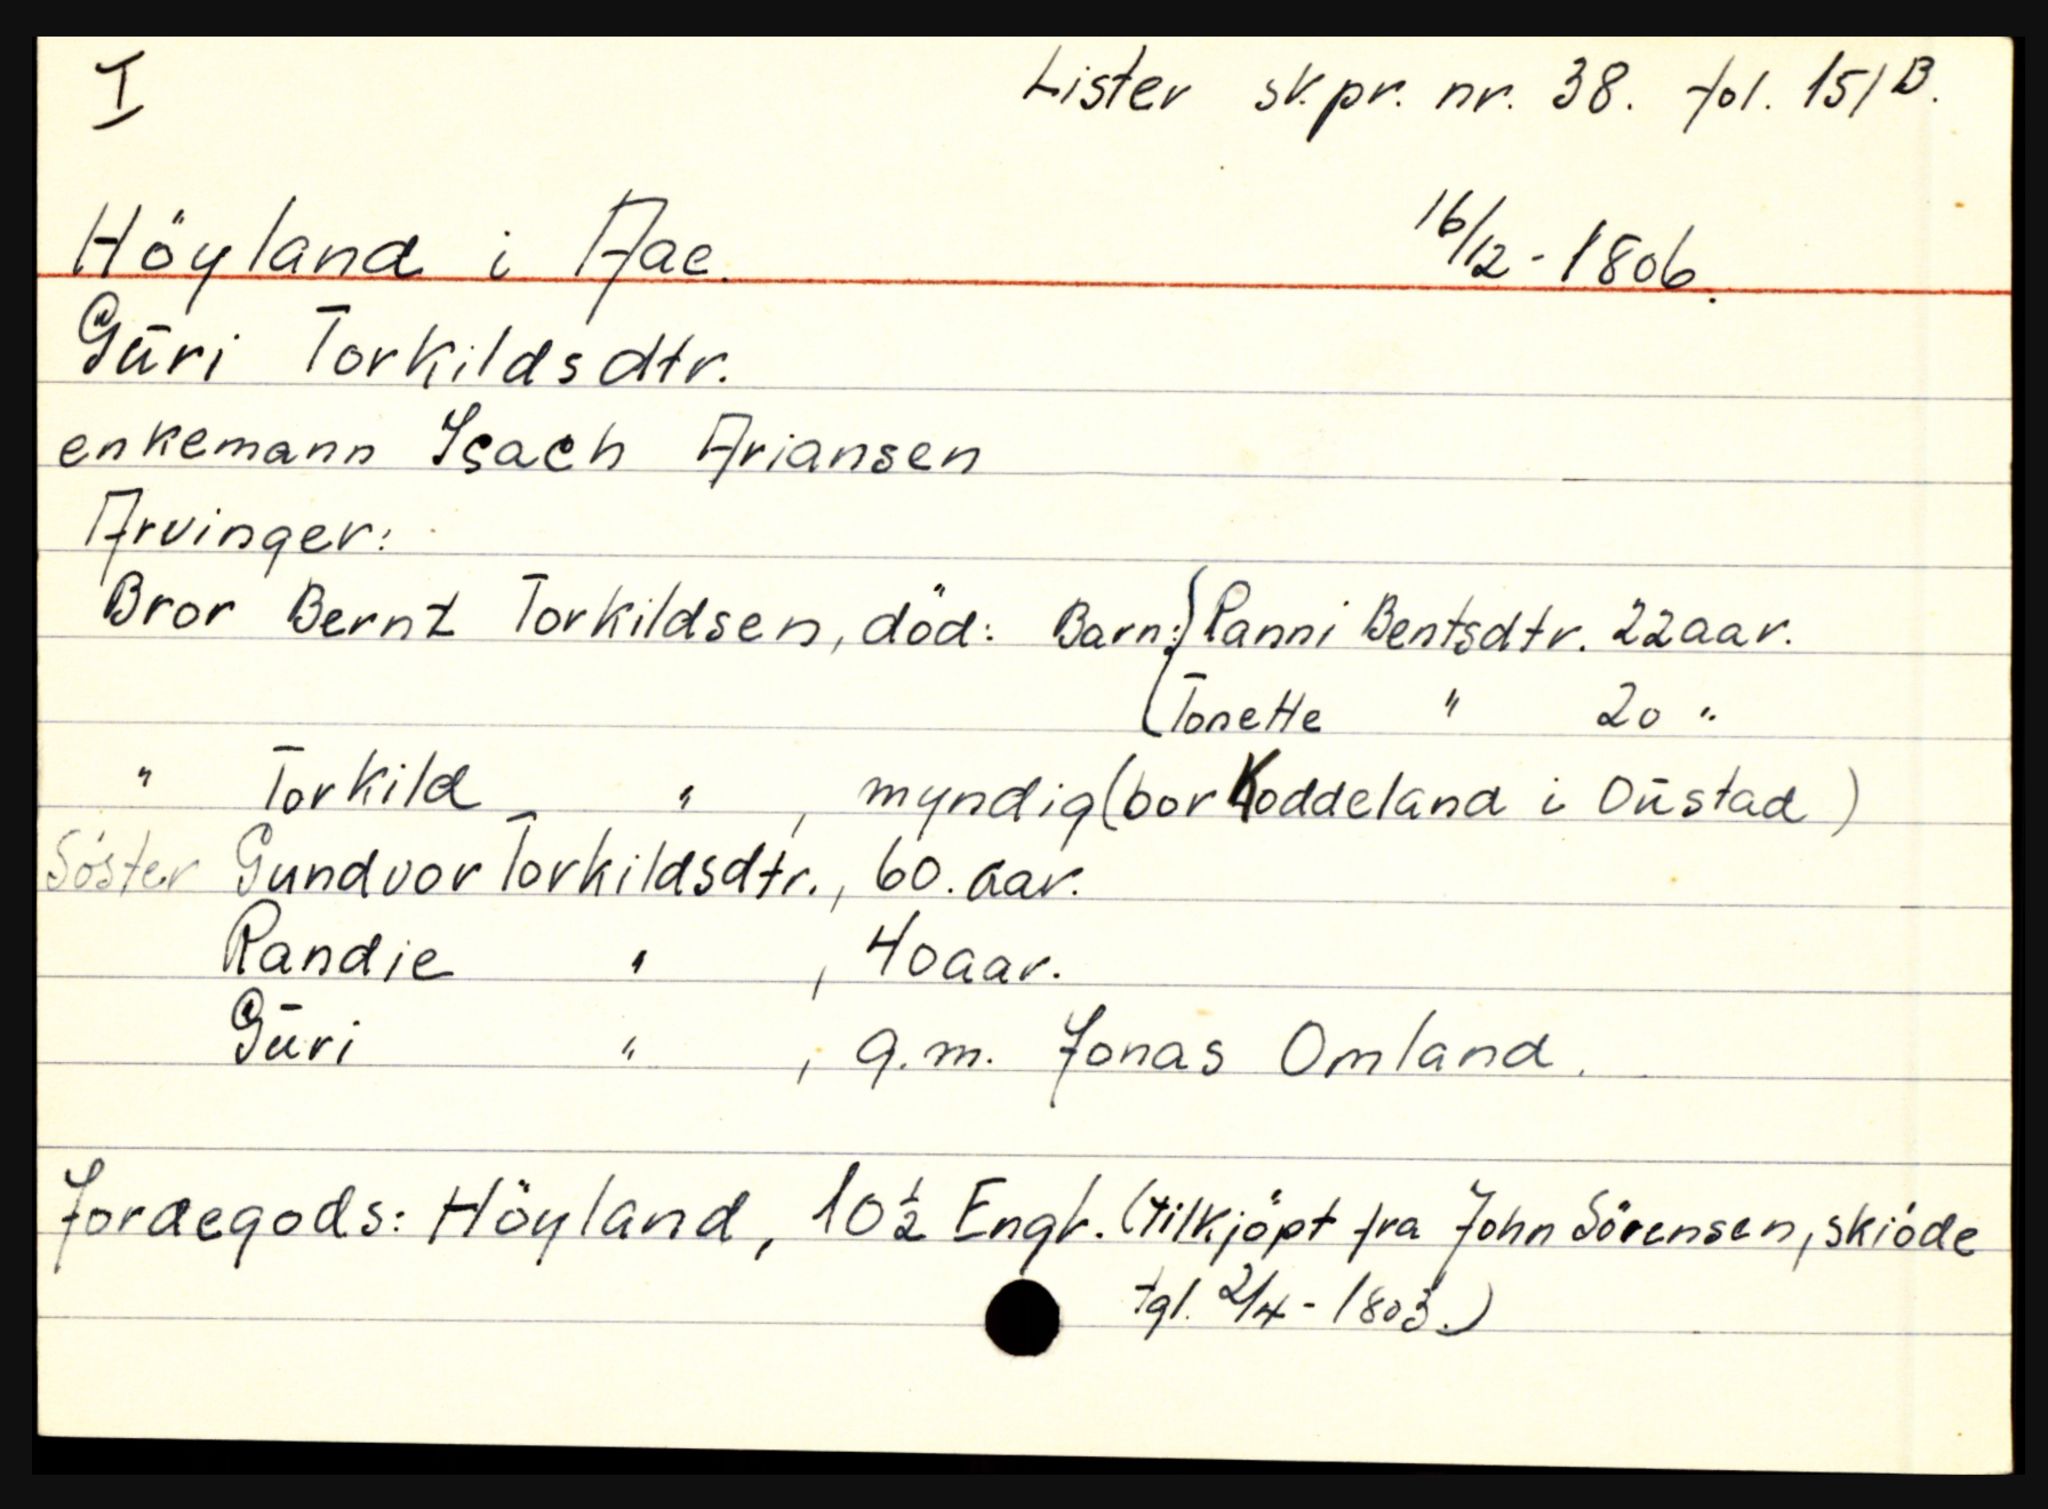 I
Lister sk.pr. nr. 38. fol. 151 B.
Höyland i Aae. 16/12-1806.
Gūri Torkildsdtr.
enkemann Isach Ariansen
Arvinger:
Bror Bernt Torkildsen, död: Barn: { Ranni Bentsdtr. 22 aar.
Tonette " 20 "
" Torkild " , myndig (bor Koddeland i Oūstad)
Söster Gundvor Torkildsdtr., 60. aar.
Randie " , 40 aar.
Gūri " , g.m. Jonas Omland.
Jordegods: Höyland, 10½ Engr. (tilkjöpt fra John Sörensen, skiöde
tgl. 2/4-1803.)